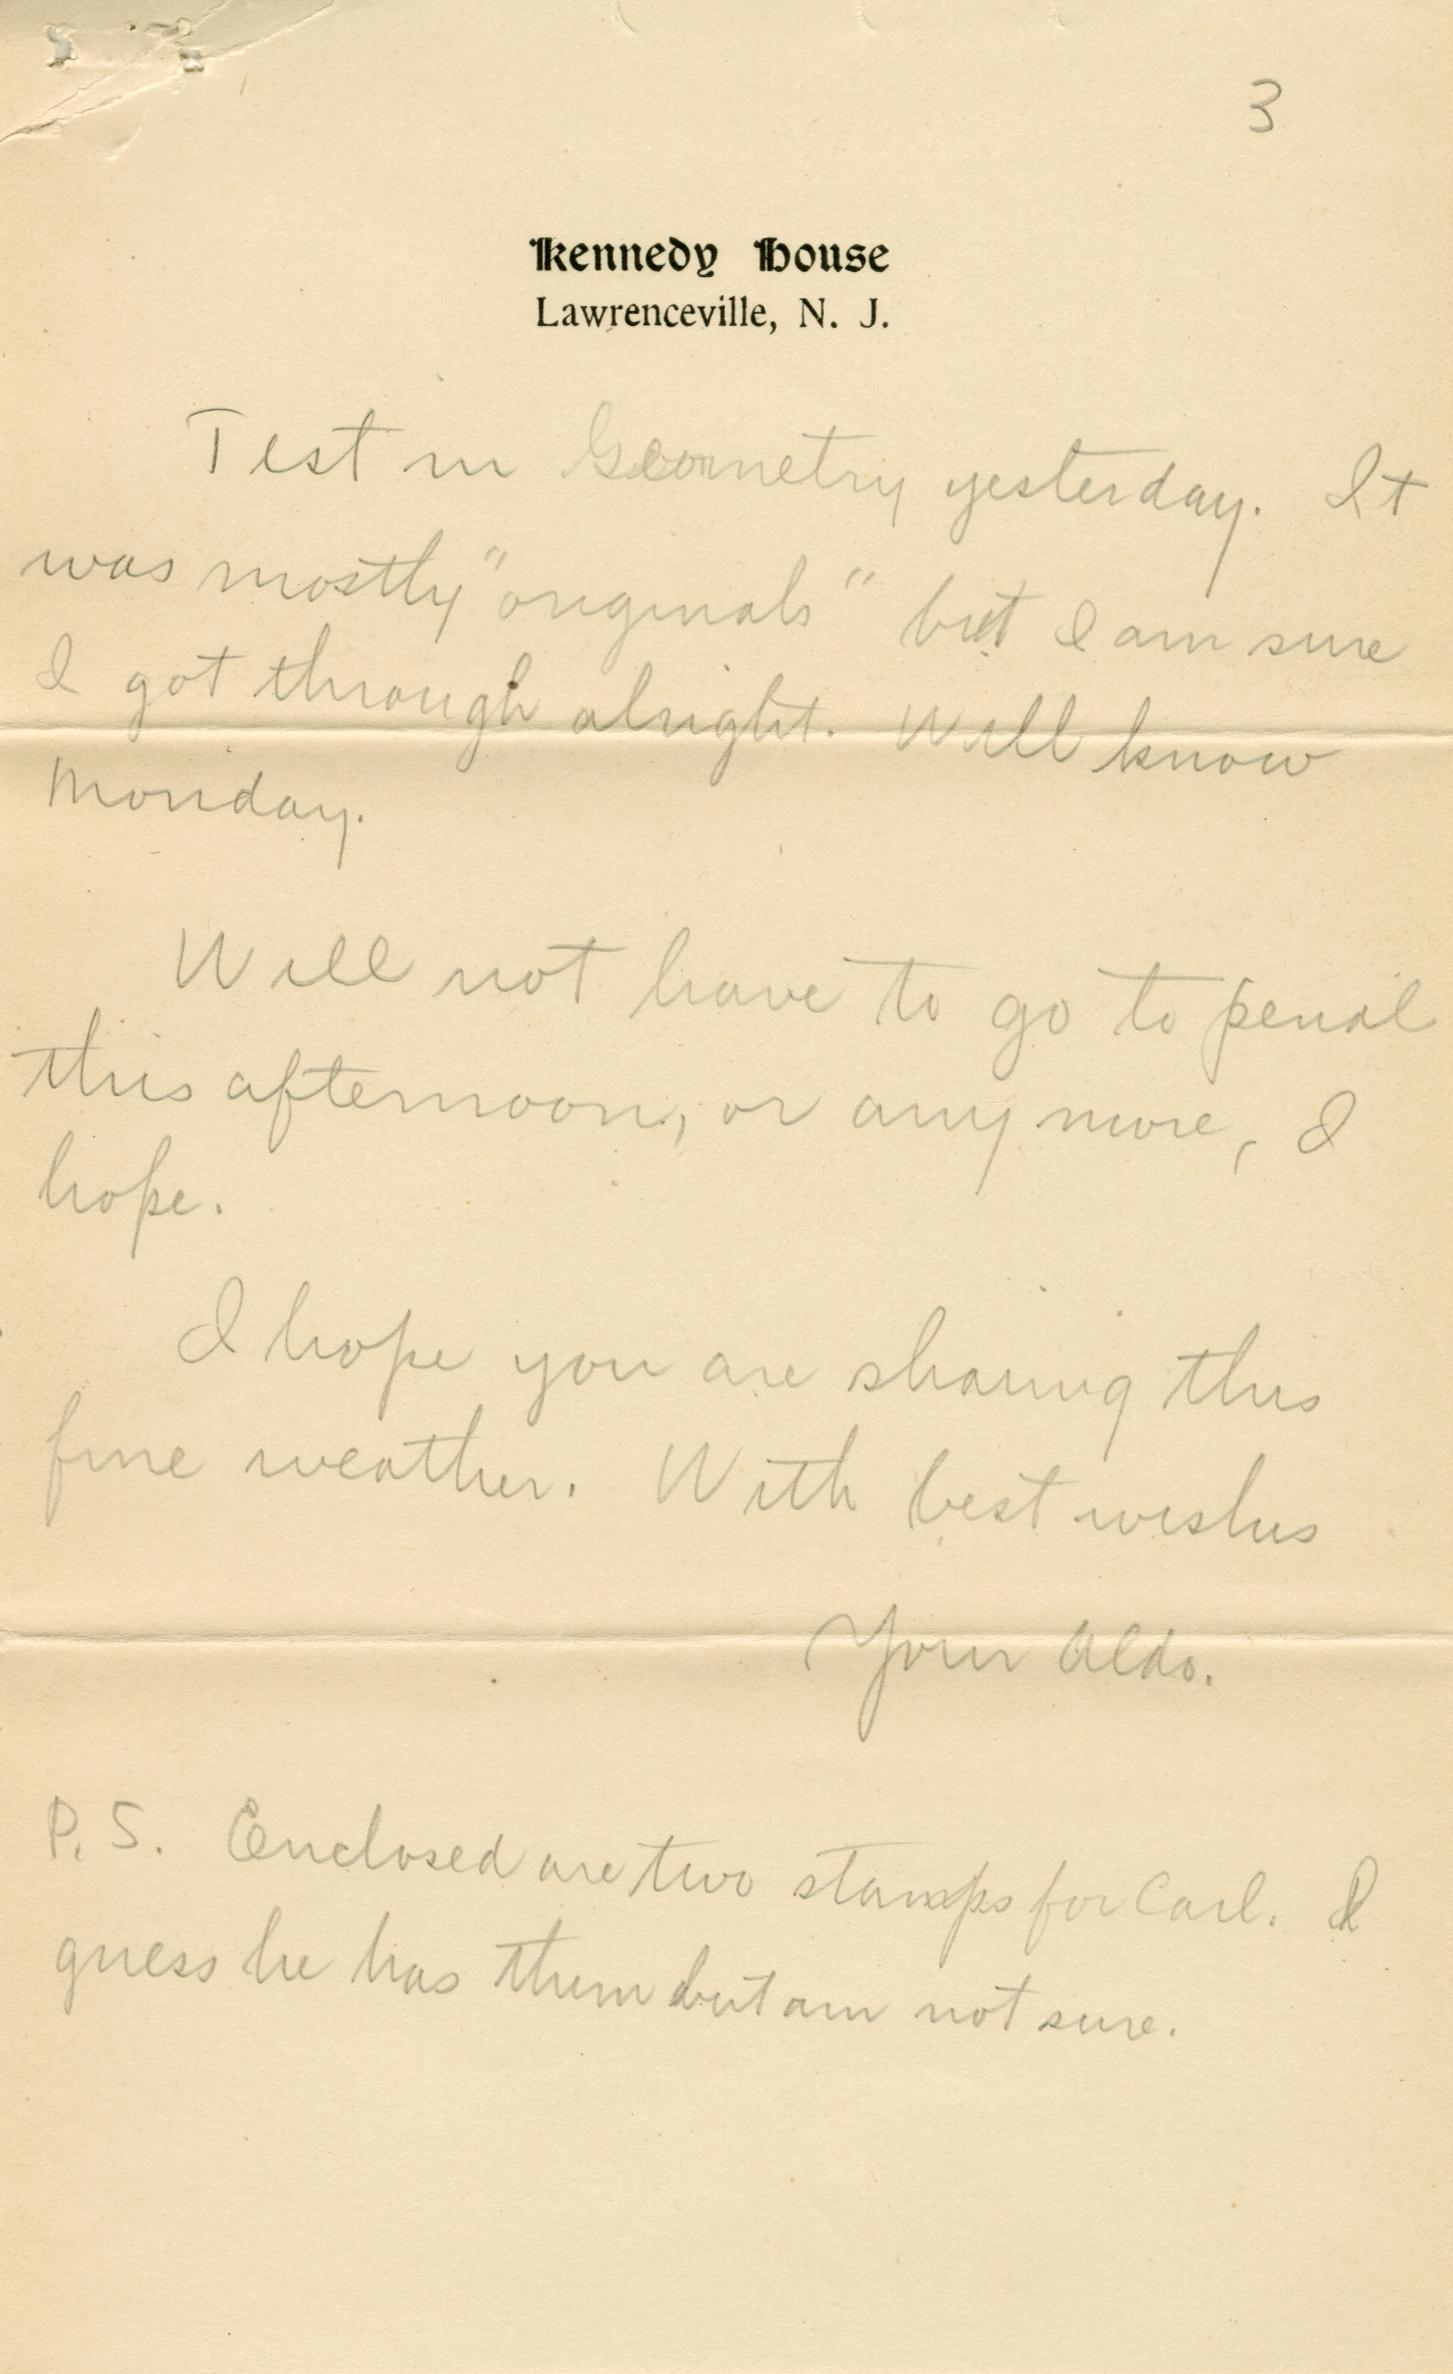 3
Kennedy House
Lawrenceville, N. J.
Test in Geometry yesterday. It
was mostly "originals" but I am sure
I got through alright. Will know
Monday.
Will not have to go to penal
this afternoon, or any more, I
hope.
I hope you are sharing this
fine weather. With best wishes
Your Aldo.
P. S. Enclosed are two stamps for Carl. I
guess he has them but am not sure.